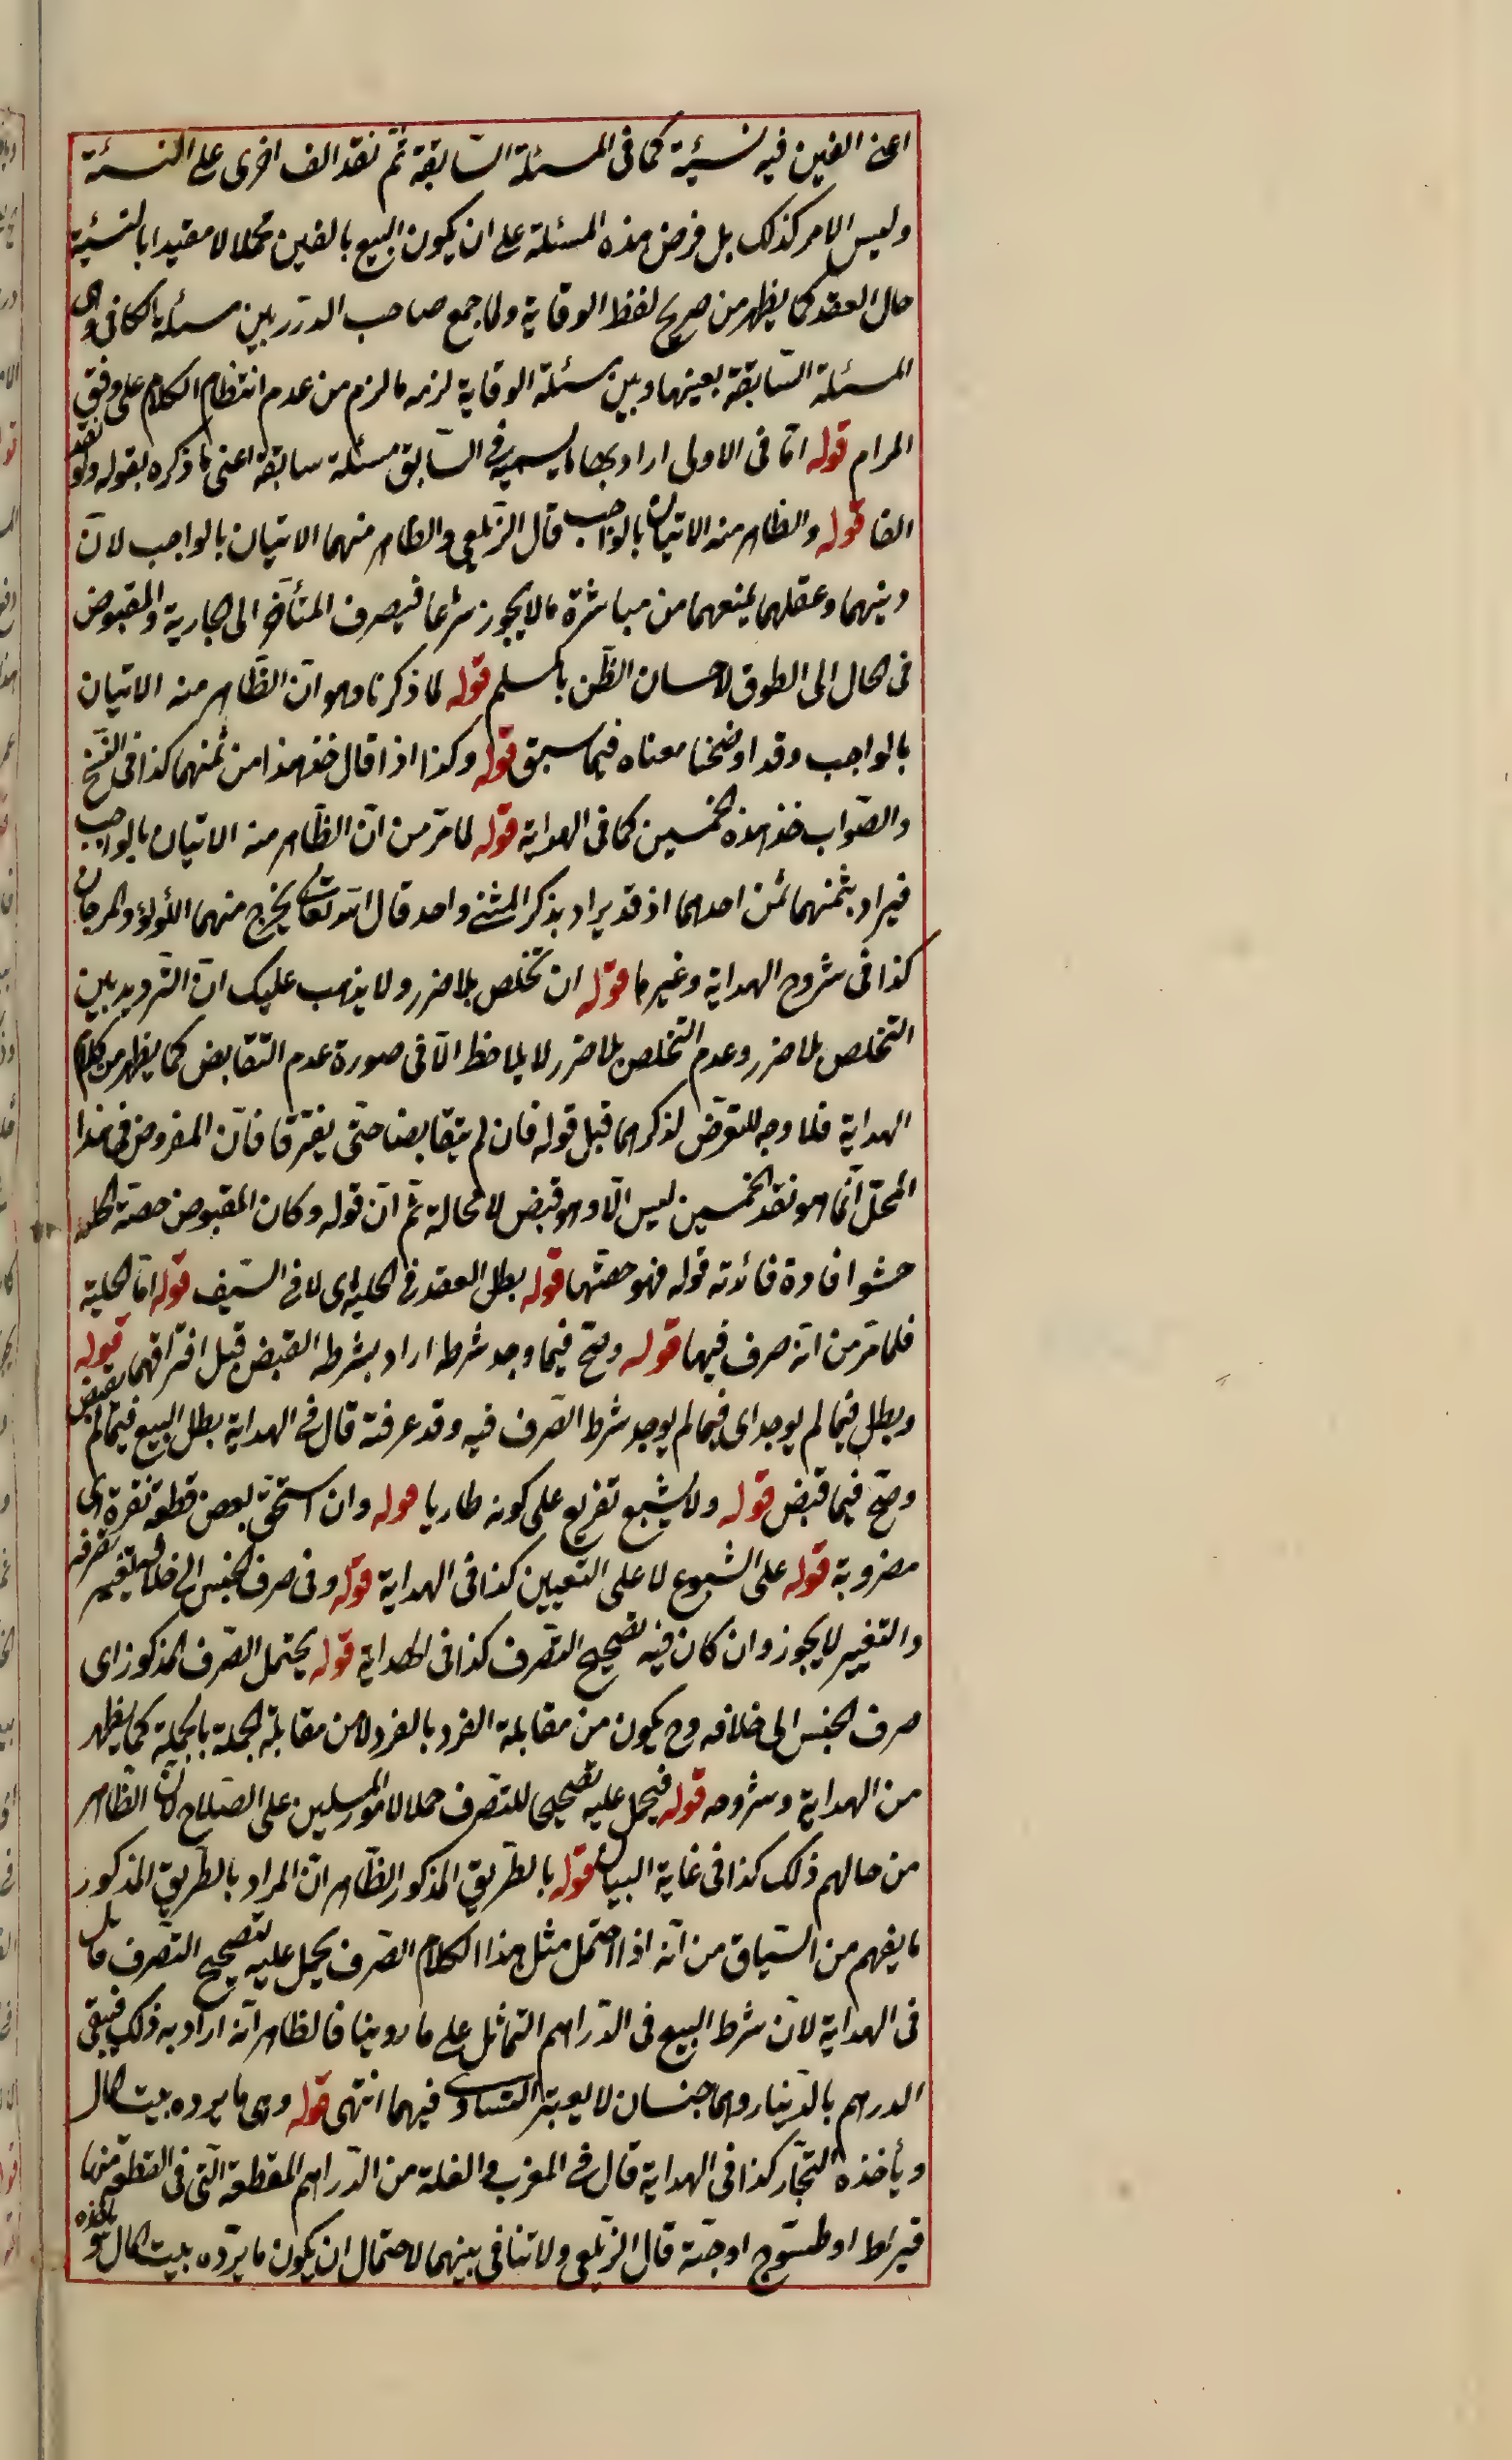 اعنى الفين فيه نسيئة كما فى المسئلة السّابقة ثمّ نقد الف اخرى على النسئة
وليس الامر كذلك بل فرض هذه المسئلة على ان يكون البيع بالفين مجملا لا مقيدا بالنسيئة
حال العقد كما يظهر من صريح لفظ الوقاية ولما جمع صاحب الدّرر بين مسئلة الكافى وهى
المسئلة السّابقة بعينها وبين مسئلة الوقاية لزمه ما لزم من عدم انتظام الكلام على وفق
المرام قوله امّا فى الاولى اراد بها ما يسميه فى السّابق مسئلة سابقة اعنى ما ذكره بقوله ولو نقد
الفا قوله والظاهر منه الاتيان بالواجب قال الزّيلعى والظاهر منهما الاتيان بالواجب لانّ
دينهما وعقلهما يمنعهما من مباشرة ما لا يجوز شرعا فيصرف المتأخّر الى الجارية والمقبوض
فى الحال الى الطوق لاحسان الظّن بالمسلم قوله لما ذكرنا وهو انّ الظّاهر منه الاتيان
بالواجب وقد اوضحنا معناه فيما سبق قوله وكذا اذا قال خذ هذا من ثمنهما كذا فى النّسخ
والصّواب خذ هذه الخمسين كما فى الهداية قوله لما مرّ من انّ الظّاهر منه الاتيان بالواجب
فيراد بثمنهما ثمن احدهما اذ قد يراد بذكر المثنى واحد قال الله تعالى يخرج منهما اللؤلؤ والمرجان
كذا فى شروح الهداية وغيرها قوله ان تخلص بلا ضرر ولا يذهب عليك انّ التّرديد بين
التّخلص بلا ضرر وعدم التّخلص بلا ضرر لا يلاحظ الّا فى صورة عدم التّقابض كما يظهر من كلام
الهداية فلا وجه للتعرّض لذكرهما قبل قوله فان لم يتقابضا حتّى يفترقا فانّ المفروض فى هذا
المحلّ انّما هو نقد الخمسين ليس الّا وهو قبض لا محالة ثمّ انّ قوله وكان المقبوض حصّة الحلية
حشو افادة فائدته قوله فهو حصّتها قوله بطل العقد فى الحلية اى لا فى السّيف قوله امّا الحلية
فلما مرّ من انّه صرف فيها قوله وصّح فيما وجد شرطه اراد بشرطه القبض قبل افتراقهما قوله
وبطل فيما لم يوجد اى فيما لم يوجد شرط الصّرف فيه وقد عرفته قال فى الهداية بطل البيع فيما لم يقبض
وصّح فيما قبض قوله ولا يشيع تفريع على كونه طاريا قوله وان استحقّ بعض قطعة نقرة اى
مضروبة قوله على الشيوع لا على التعيين كذا فى الهداية قوله وفى صرف الجنس الى خلافه تغيير تصرفه
والتغيير لا يجوز وان كان فيه تصحيح التّصرف كذا فى الهداية قوله يحتمل الصّرف المذكور اى
صرف الجنس الى خلافه وح يكون من مقابلة الفرد بالفرد لا من مقابلة الجملة بالجملة كما يظهر
من الهداية وشروحه قوله فيحمل عليه تصحيحا للتصّرف حملا لامور المسلمين على الصّلاح لانّ الظّاهر
من حالهم ذلك كذا فى غاية البيان قوله بالطّريق المذكور الظّاهر انّ المراد بالطّريق المذكور
ما يفهم من السّياق من انّه اذا احتمل مثل هذا الكلام الصّرف يحمل عليه لتصحيح التّصرف قال
فى الهداية لانّ شرط البيع فى الدّراهم التّماثل على ما روينا فالظاهر انّه اراد به ذلك فيبقى
الدرهم بالدّينار وهما جنسان لا يعتبر التّساوى فيهما انتهى قوله وهى ما يرده بيت المال
ويأخذه التّجار كذا فى الهداية قال فى المغرب والغلة من الدّراهم المقطعة الّتى فى القطعة منها
قيراط او طسّوج او حبّة قال الزّيلعى ولا تنافى بينهما لاحتمال ان يكون ما يردّه بيت المال ويأخذه